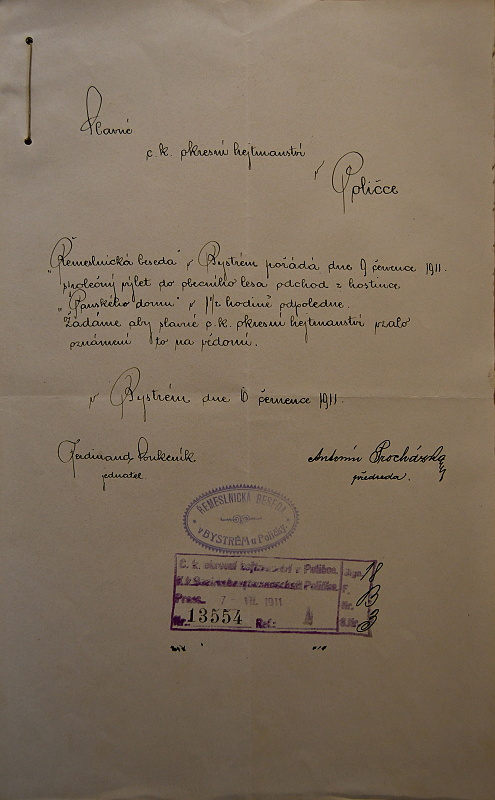 Slavné
c. k. okresní hejtmanství
v Poličce
"Řemeslnická beseda" v Bystrém pořádá dne 9 července 1911.
společný výlet do obecního lesa odchod z hostince
"Panského domu" v 1/2 hodině odpoledne.
Žádáme aby slavné c. k. okresní hejtmanství vzalo
oznámení to na vědomí.
v Bystrém dne 6 července 1911.
Ferdinand
Antonín Procházka
jednatel.
předseda.
ŘEMESLNICKÁ BESEDA
v BYSTRÉM u Poličky
C. k. okresní hejtmanství v Poličce.
K. k. Bezirkshauptmannschaft Polička.
Praes. 7 - VII. 1911
Nr. 13554 Ref.: